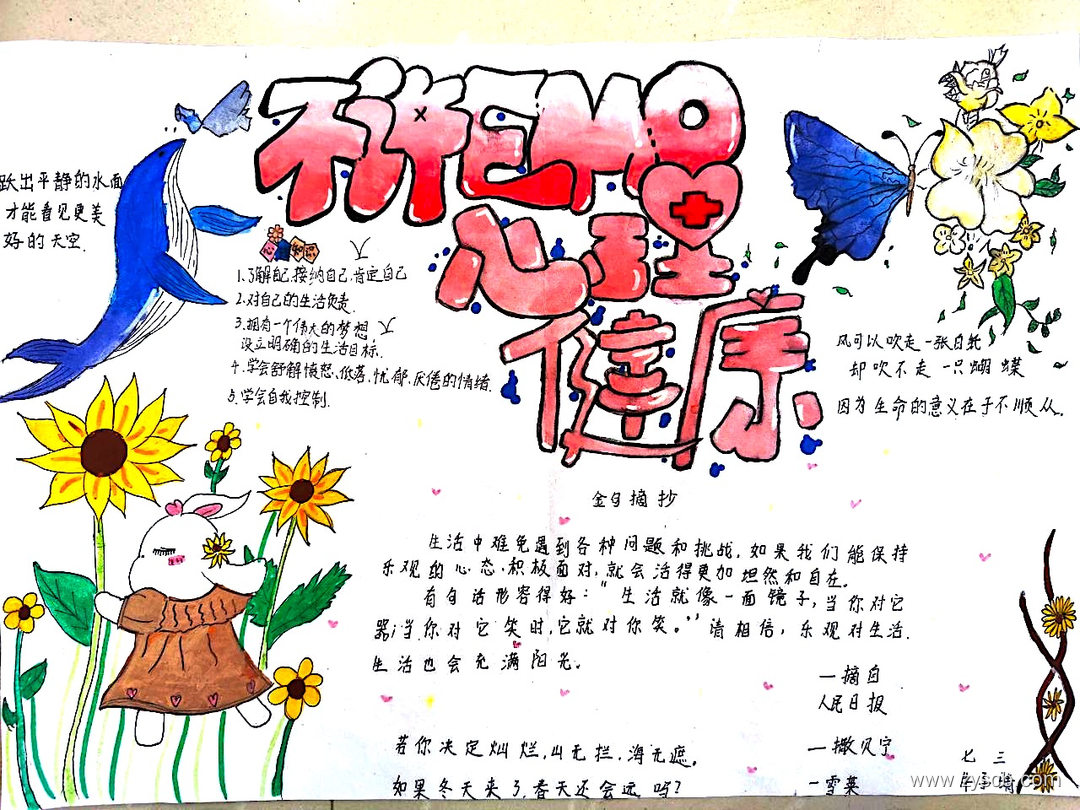 不许EMO
心理
健康
跃出平静的水面
才能看见更美
好的天空.
1.了解自己,接纳自己,肯定自己
2.对自己的生活负责.
3.拥有一个伟大的梦想
设立明确的生活目标.
4.学会舒解愤怒、低落、忧郁、厌倦的情绪.
5.学会自我控制.
风可以吹走一张白纸
却吹不走一只蝴蝶
因为生命的意义在于不顺从.
金句摘抄
生活中难免遇到各种问题和挑战,如果我们能保持
乐观的心态,积极面对,就会活得更加坦然和自在.
有句话形容得好:“生活就像一面镜子,当你对它
哭;当你对它笑时,它就对你笑。”请相信,乐观对生活.
生活也会充满阳光.
—摘自
人民日报
若你决定灿烂,山无拦,海无遮.
—撒贝宁
如果冬天来了,春天还会远吗?
—雪莱
七三